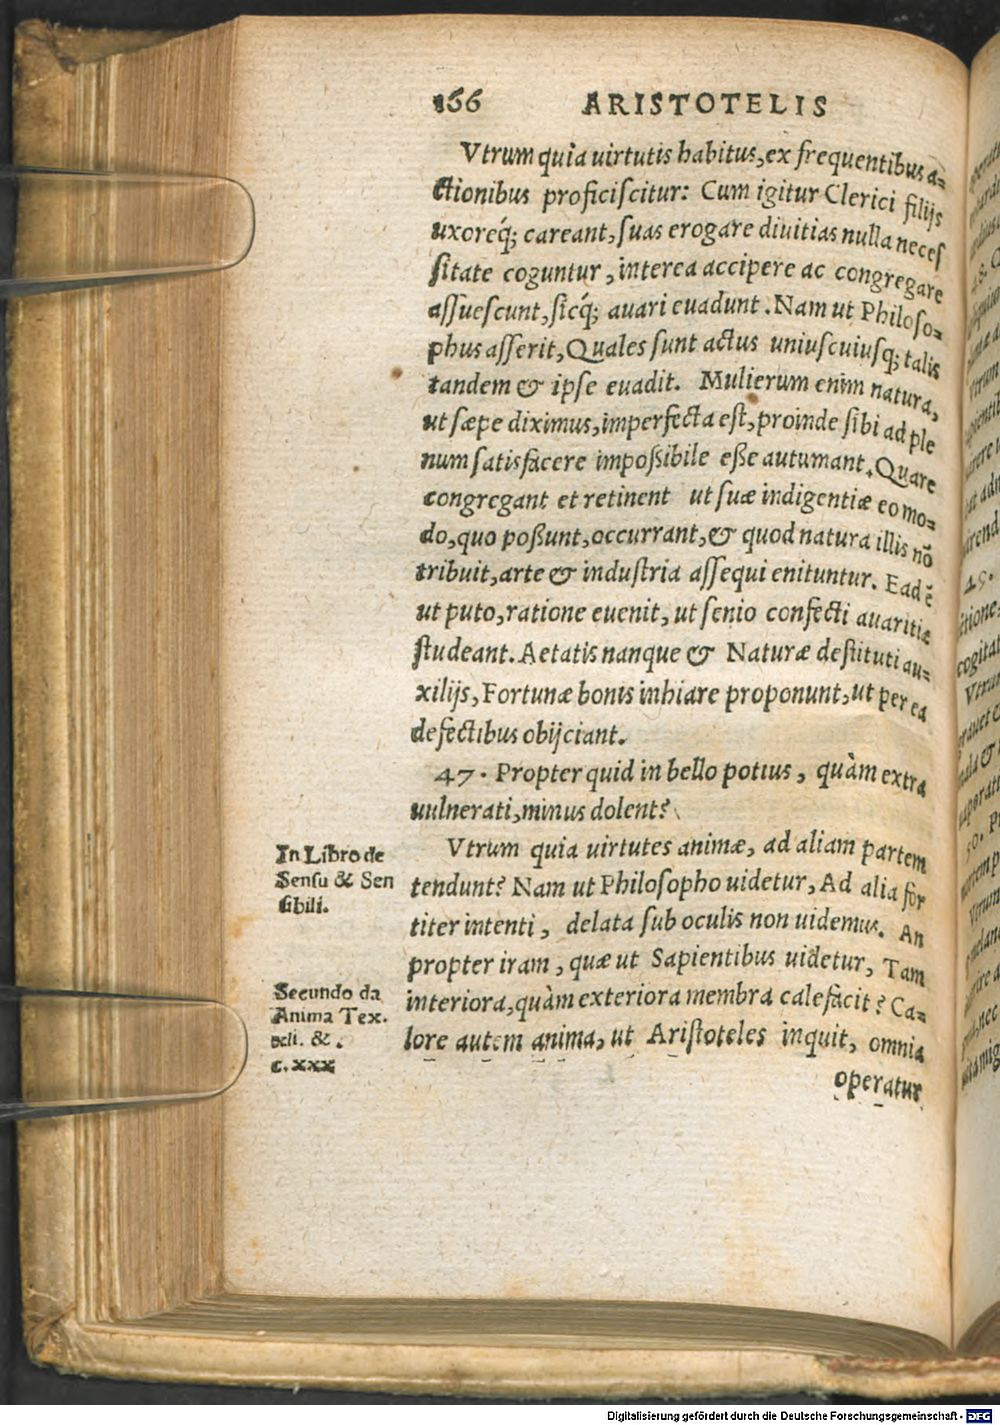 166 ARISTOTELIS
Vtrum quia uirtutis habitus, ex frequentibus a=
ctionibus proficiſcitur: Cum igitur Clerici filijs
uxoreq́; careant, ſuas erogare diuitias nulla neceſ
ſitate coguntur, interea accipere ac congregare
aſſueſcunt, ſicq́; auari euadunt. Nam ut Philoſo=
phus aſſerit, Quales ſunt actus uniuſcuiuſq; talis
tandem & ipſe euadit. Mulierum enim natura,
ut ſæpe diximus, imperfecta eſt, proinde ſibi ad ple
num ſatisfacere impoßibile eße autumant. Quare
congregant et retinent ut ſuæ indigentiæ eo mo=
do, quo poßunt, occurrant, & quod natura illis nō
tribuit, arte & induſtria aſſequi enituntur. Eadē
ut puto, ratione euenit, ut ſenio confecti auaritiæ
ſtudeant. Aetatis nanque & Naturæ deſtituti au=
xilijs, Fortunæ bonis inhiare proponunt, ut per ea
defectibus obijciant.
47. Propter quid in bello potius, quàm extra
uulnerati, minus dolent?
In Libro de
Senſu & Sen
ſibili.
Vtrum quia uirtutes animæ, ad aliam partem
tendunt? Nam ut Philoſopho uidetur, Ad alia for
titer intenti, delata ſub oculis non uidemus. An
propter iram, quæ ut Sapientibus uidetur, Tam
Secundo da
Anima Tex.
&.
c. xxx
interiora, quàm exteriora membra calefacit? Ca=
lore autem anima, ut Ariſtoteles inquit, omnia
operatur
Digitalisierung gefördert durch die Deutsche Forschungsgemeinschaft - DFG